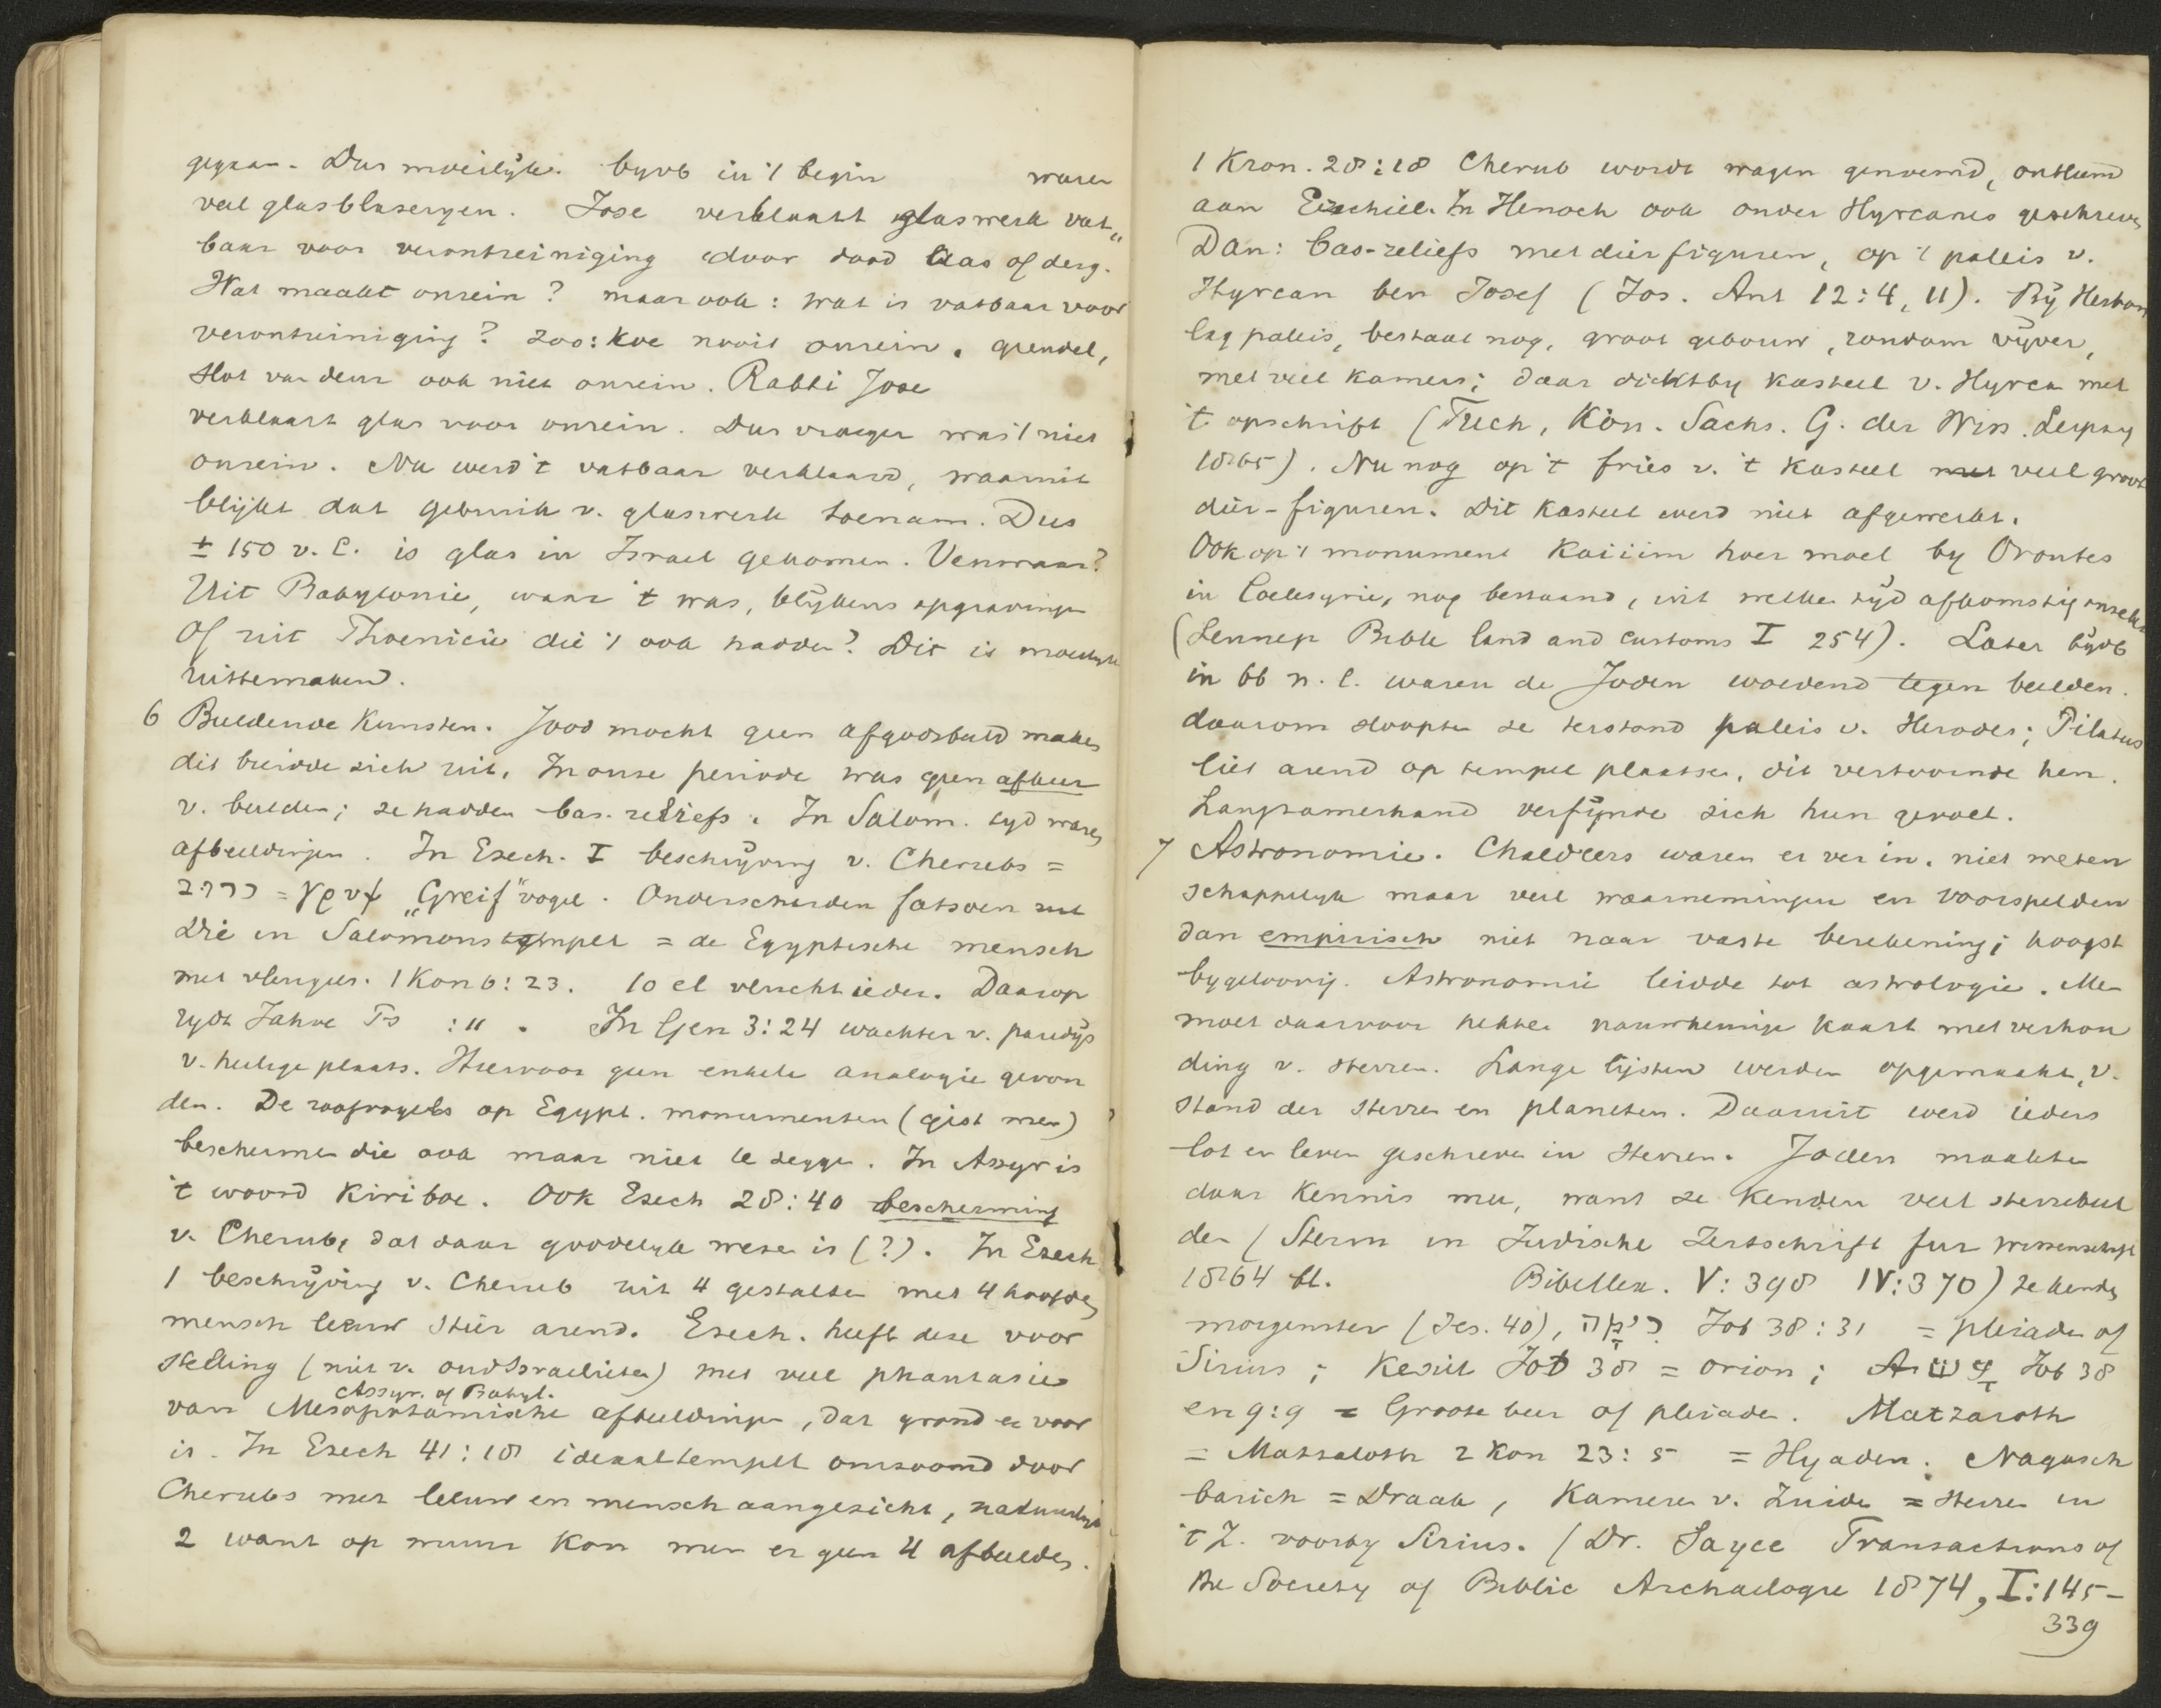 gegaan. Dus moeilijk. byvb in 't begin waren
veel glasblazeryen. Jose verklaart glaswerk vat„
baar voor verontreiniging door dood Aas of derg.
Wat maakt onrein? maar ook: wat is vatbaar voor
verontreiniging? zoo: koe nooit onrein. grendel,
slot van deur ook niet onrein. Rabbi Jose
verklaart glas voor onrein. Dus vroeger was 't niet
onrein. Nu werd 't vatbaar verklaard, waaruit
blijkt dat gebruik v. glaswerk toenam. Dus
± 150 v. C. is glas in Israel gekomen. Vanwaar?
Uit Babylonie, waar 't was, blijkens opgravingen
Of uit Phoenicie die 't ook hadden? Dit is moeilijk
uittemaken.
6 Beeldende Kunsten. Jood mocht geen afgodsbeeld maken
dit breidde zich uit. In onze periode was geen afkeer
v. beelden; ze hadden bas-reliefs. In Salom. tyd waren
afbeeldingen. In Ezech. I beschrijving v. Cherubs =
כרוב = γρυψ „Greif" vogel. Onderscheiden fatsoen
Die in Salomons tempel = de Egyptische mensch
met vleugels. 1 Kon 6:23. 10 el vlucht ieder. Daarop
rydt Jahve Ps :11. In Gen 3:24 wachter v. paradijs
v. heilige plaats. Hiervoor geen enkele analogie gevon
den. De roofvogels op Egypt. monumenten (gist men)
beschermen die ook maar niet te zeggen. In Assyr is
't woord Kiriboe. Ook Ezech 28:40 bescherming
v. Cherub, dat daar goddelyk wezen is (?). In Ezech
1 beschrijving v. Cherub uit 4 gestalten met 4 hoofden
mensch leeuw stier arend. Ezech. heeft deze voor
stelling (niet v. oud Israelieten) met veel phantasie
Assyr. of Babyl.
van Mesopotamische afbeeldingen, dat grond er voor
is. In Ezech 41:18 ideaaltempel omzoomd door
Cherubs met leeuw en mensch aangezicht, natuurlijk
2 want op muur kon men er geen 4 afbeelden.
1 Kron. 28:18 Cherub wordt wagen genoemd, ontleend
aan Ezechiel. In Henoch ook onder Hyrcanus geschreven
Dan: bas-reliefs met dierfiguren, op 't paleis v.
Hyrcan ben Josef (Jos. Ant 12:4, 11). By Hesbon
lag paleis, bestaat nog, groot gebouw, rondom vijver,
met veel kamers; daar dichtby kasteel v. Hyrcan met
't opschrift (Tuch, Kön. Sachs. G. der Wiss. Leipzig
1865). Nu nog op 't fries v. 't kasteel met veel groote
dier-figuren. Dit kasteel werd niet afgewerkt.
Ook op 't monument by Orontes
in Coelesyrie, nog bestaand, uit welke tijd afkomstig onzeker
(Lennep Bible land and customs I 254). Later bijvb
in 66 n. C. waren de Joden woedend tegen beelden.
daarom sloopten ze terstond paleis v. Herodes; Pilatus
liet arend op tempel plaatsen, dit vertoornde hen.
Langzamerhand verfijnde zich hun gevoel.
7 Astronomie. Chaldeers waren er ver in. niet weten
schappelyk maar veel waarnemingen en voorspelden
dan empirisch niet naar vaste berekening; hoogst
bygeloovig. Astronomie leidde tot astrologie. Men
moet daarvoor hebben nauwkeurige kaart met verhou
ding v. sterren. Lange lijsten werden opgemaakt, v.
stand der sterren en planeten. Daaruit werd ieders
lot en leven geschreven in sterren. Joden maakten
daar kennis mee, want ze kenden veel sterrebeel
den (Stern in Judische Zeitschrift fur Wissenschaft
1864 bl. Bibellex. V:398 IV:370) ze kenden
morgenster (Jes. 40), כימה Job 38:31 = pleiaden of
Sirius; Kesiel Job 38 = orion; עש Job 38
en 9:9 = Groote beer of pleiaden. Matzaroth
= Matzaloth 2 Kon 23:5 = Hyaden. Nagasch
barich = Draak, Kameren v. Zuiden = sterren in
't Z. voorby Sirius. (Dr. Sayce Transactions of
the Society of Biblic Archaelogie 1874, I:145-
339